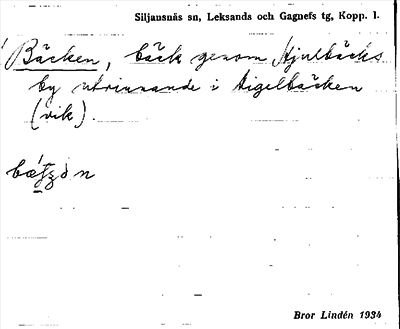 Siljansnäs sn, Leksands och Gagnefs tg, Kopp. l.
Bäcken, bäck genom Hjulbäcks
by utrinnande i Aigelbäcken
(vik).
Bror Lindén 1934